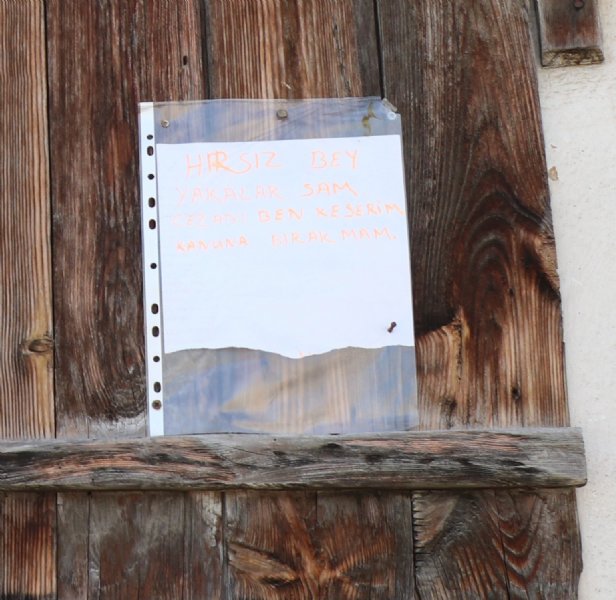 HIRSIZ BEY
YAKALAR SAM
CEZANI BEN KESERİM
KANUNA BIRAK MAM.